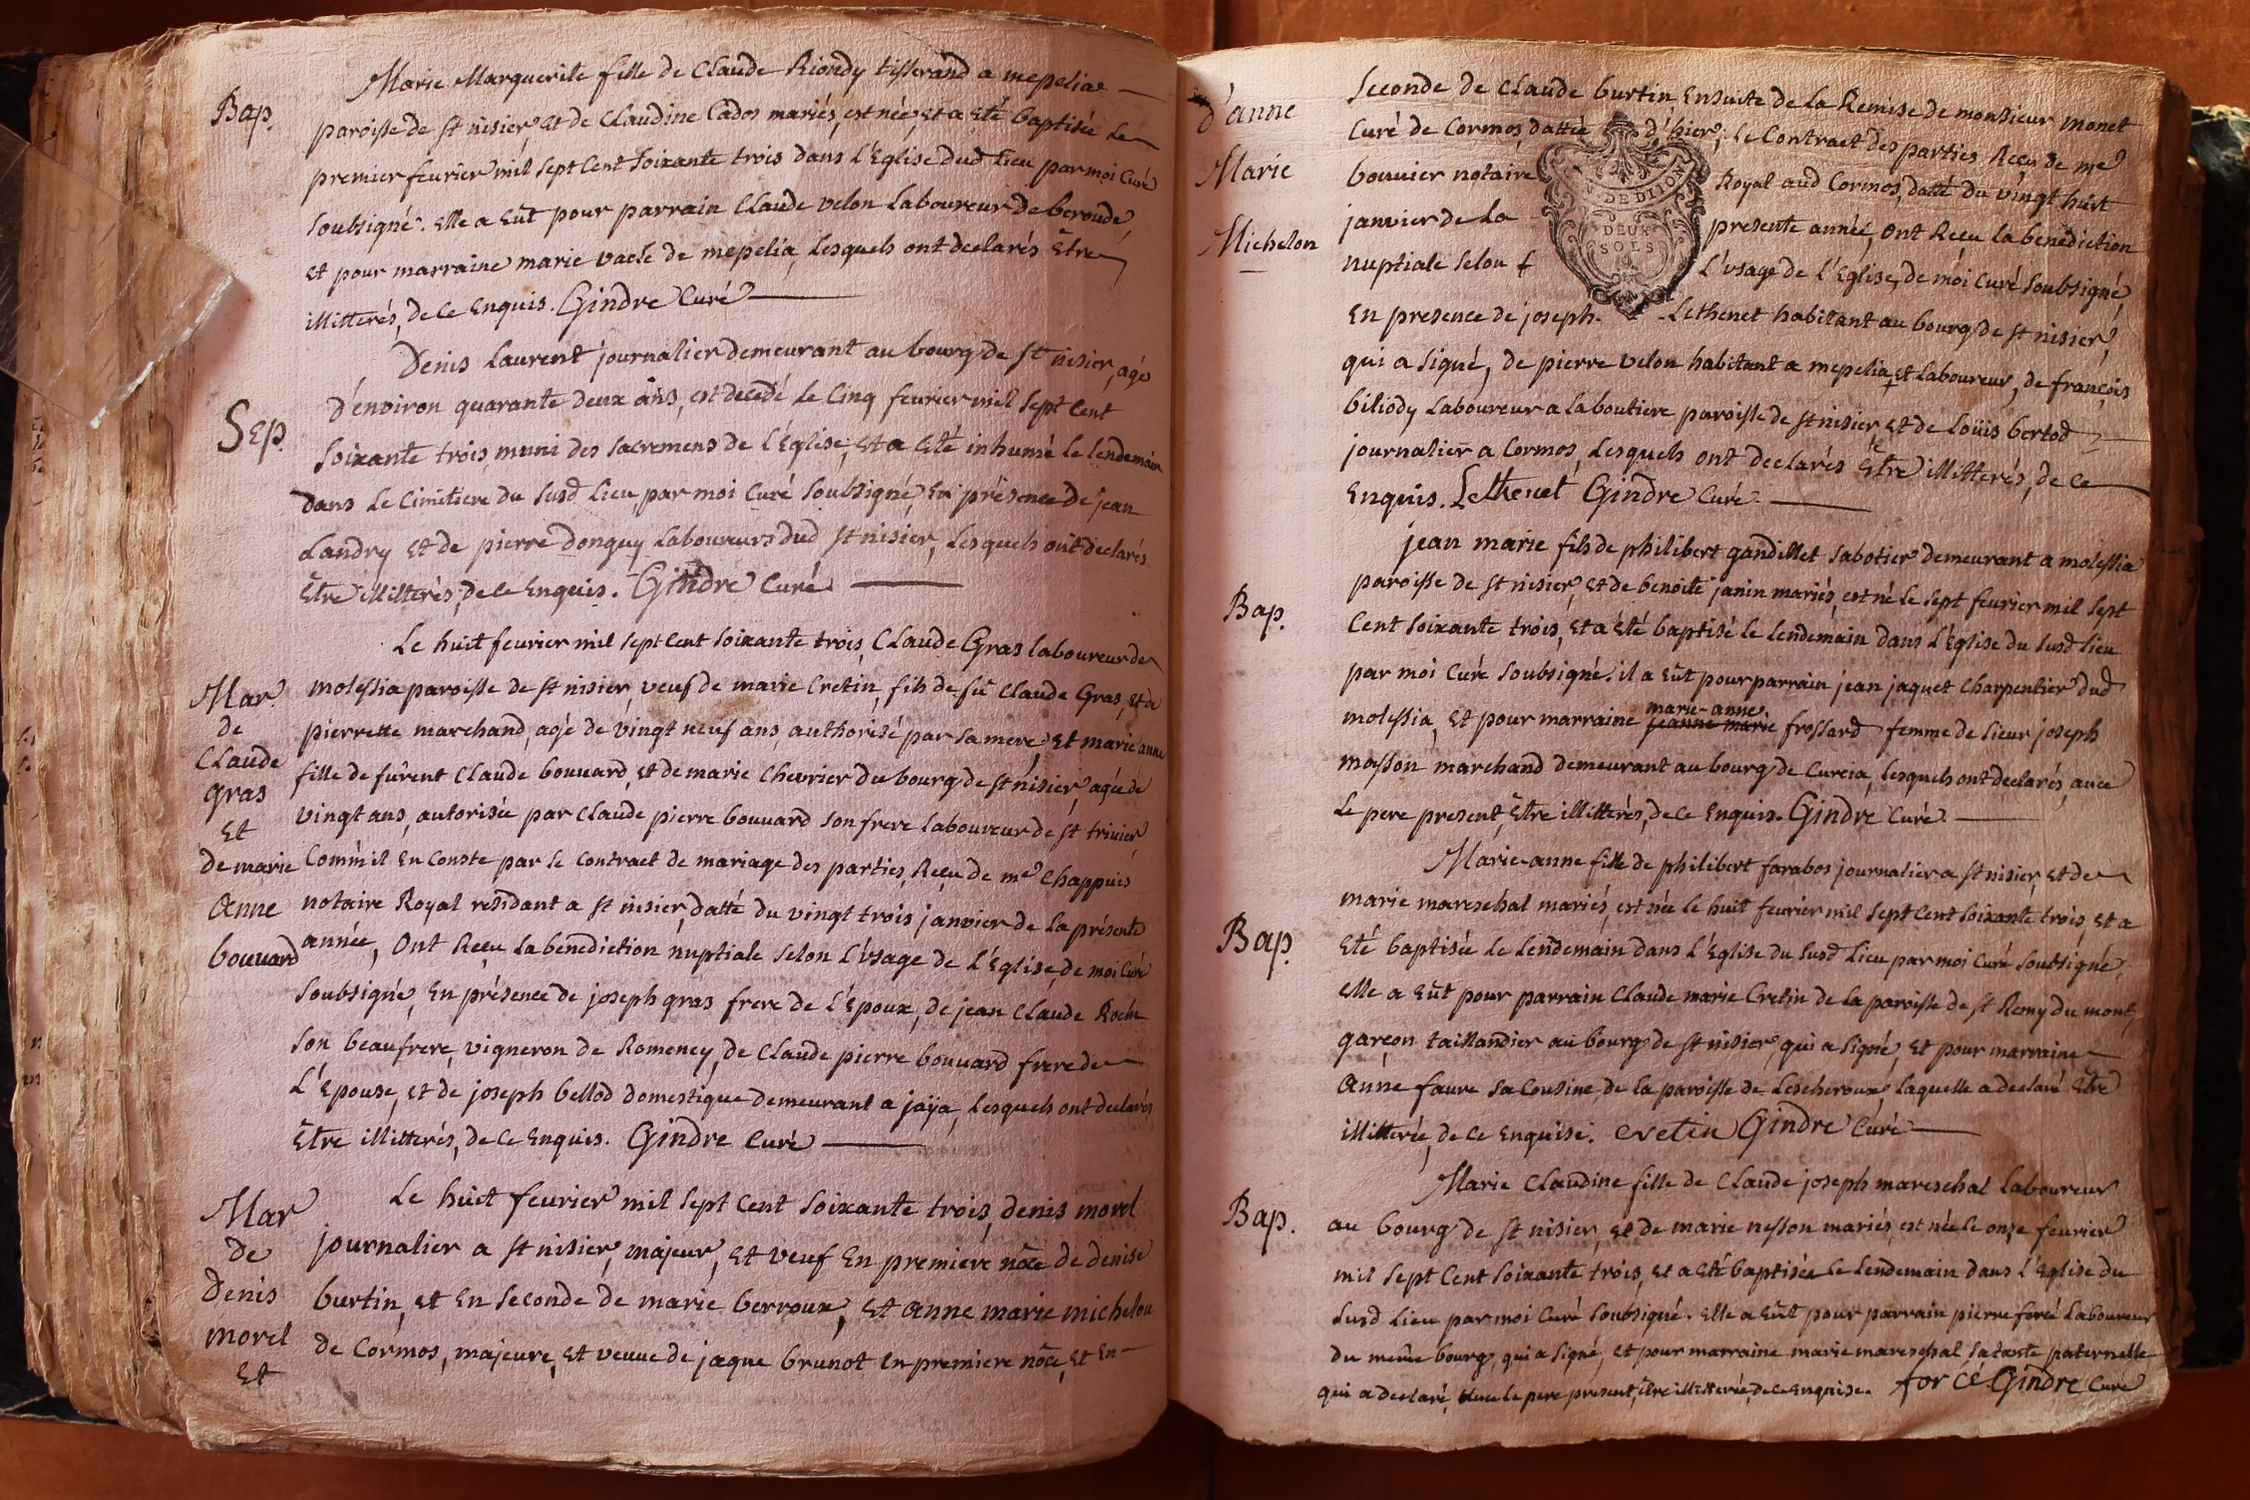 Bap.
Marie Marguerite fille de Claude Riondy tisserand a mepelia
paroisse de st nisier, et de Claudine Cados mariés, est née, et a eté baptisée le
premier feurier mil sept cent soixante trois dans l'Eglise dud lieu par moi curé
soubsigné. elle a eût pour parrain Claude velon laboureur de beroude,
et pour marraine marie vache de mepelia, lesquels ont declarés être
illitterés, de ce enquis. Gindre curé
Sep.
Denis Laurent journalier demeurant au bourg de st nisier, agé
d'environ quarante deux ans, est decedé le cinq feurier mil sept cent
soixante trois, muni des sacremens de l'Eglise, et a eté inhumé le lendemain
dans le cimitiere du susd lieu, par moi curé soubsigné, en présence de jean
Landry et de pierre donguy laboureurs dud st nisier, lesquels ont declarés
être illitterés, de ce enquis. Gindre curé
Mar.
de
Claude
gras
et
de marie
Anne
bouvard
Le huit feurier mil sept cent soixante trois, Claude Gras laboureur de
molessia paroisse de st nisier, veuf de marie Cretin, fils de fû Claude Gras, et de
pierrette marchand, agé de vingt neuf ans, authorisé par sa mere, et marie anne
fille de fûrent Claude bouvard, et de marie Chevrier du bourg de st nisier, agée de
vingt ans, autorisée par Claude pierre bouvard son frere laboureur de st trivier,
comm'il en conste par le contract de mariage des parties, Reçu de me Chappuis
notaire Royal residant a st nisier, datté du vingt trois janvier de la présente
année, Ont Reçu la benediction nuptiale selon l'usage de l'Eglise, de moi curé
soubsigné, en présence de joseph gras frere de l'Epoux, de jean Claude
son beaufrere, vigneron de Romeney, de Claude pierre bouvard frere de
l'Epouse, et de joseph bellod domestique demeurant a jaÿa, lesquels ont declarés
être illitterés, de ce enquis. Gindre curé
Mar
de
Denis
morel
et
Le huit feurier mil sept cent soixante trois, denis morel
journalier a st nisier, majeur, et veuf en premiere nôce de denise
burtin, et en seconde de marie berroux, et anne marie michelon
de Cormos, majeure, et veuve de jaque brunot en premiere nôce, et en
d'anne
Marie
Michelon
seconde de Claude burtin, ensuite de la Remise de monsieur monet
curé de Cormos, dattée d'hier; le Contract des parties Reçu de me
bouvier notaire Royal aud Cormos, datté du vingt huit
janvier de la presente année, Ont Reçu la benediction
nuptiale selon l'usage de l'Eglise, de moi curé soubsigné,
DE DIION
DEUX
SOLS
en presence de joseph Lethenet habitant au bourg de st nisier,
qui a signé, de pierre velon habitant a mepelia, et laboureur, de françois
biliody laboureur a la boutiere paroisse de st nisier, et de Loüis bertod
journalier a Cormos, lesquels ont declarés être illitterés, de ce
enquis. Lethenet Gindre curé.
Bap.
jean marie fils de philibert gandillet sabotier demeurant a molessia
paroisse de st nisier, et de benoite janin mariés, est né le sept feurier mil sept
cent soixante trois, et a été baptisé le lendemain dans l'Eglise du susd lieu
par moi curé soubsigné. il a eût pour parrain jean jaquet charpentier dud
marie-anne
molessia, et pour marraine jeanne marie frossard femme de sieur joseph
masson marchand demeurant au bourg de Curcia, lesquels ont declarés, avec
le pere present, être illitterés, de ce enquis. Gindre curé.
Bap.
Marie-anne fille de philibert farabos journalier a st nisier, et de
marie mareschal mariés, est née le huit feurier mil sept cent soixante trois, et a
eté baptisée le lendemain dans l'Eglise du susd lieu par moi curé soubsigné.
elle a eût pour parrain Claude marie Cretin de la paroisse de st Remy du mont,
garçon taillandier au bourg de st nisier, qui a signé, et pour marraine
Anne faure sa cousine de la paroisse de Lescheroux, laquelle a declaré être
illitterée, de ce enquise. cretin Gindre curé
Bap.
Marie Claudine fille de Claude joseph mareschal laboureur
au bourg de st nisier, et de marie nesson mariés, est née le onze feurier
mil sept cent soixante trois, et a eté baptisée le lendemain dans l'Eglise du
susd lieu par moi curé soubsigné. elle a eût pour parrain pierre forcé laboureur
du même bourg, qui a signé, et pour marraine marie mareschal, sa tante paternelle
qui a declaré, avec le pere présent, être illitterée, de ce enquise. for cé Gindre curé